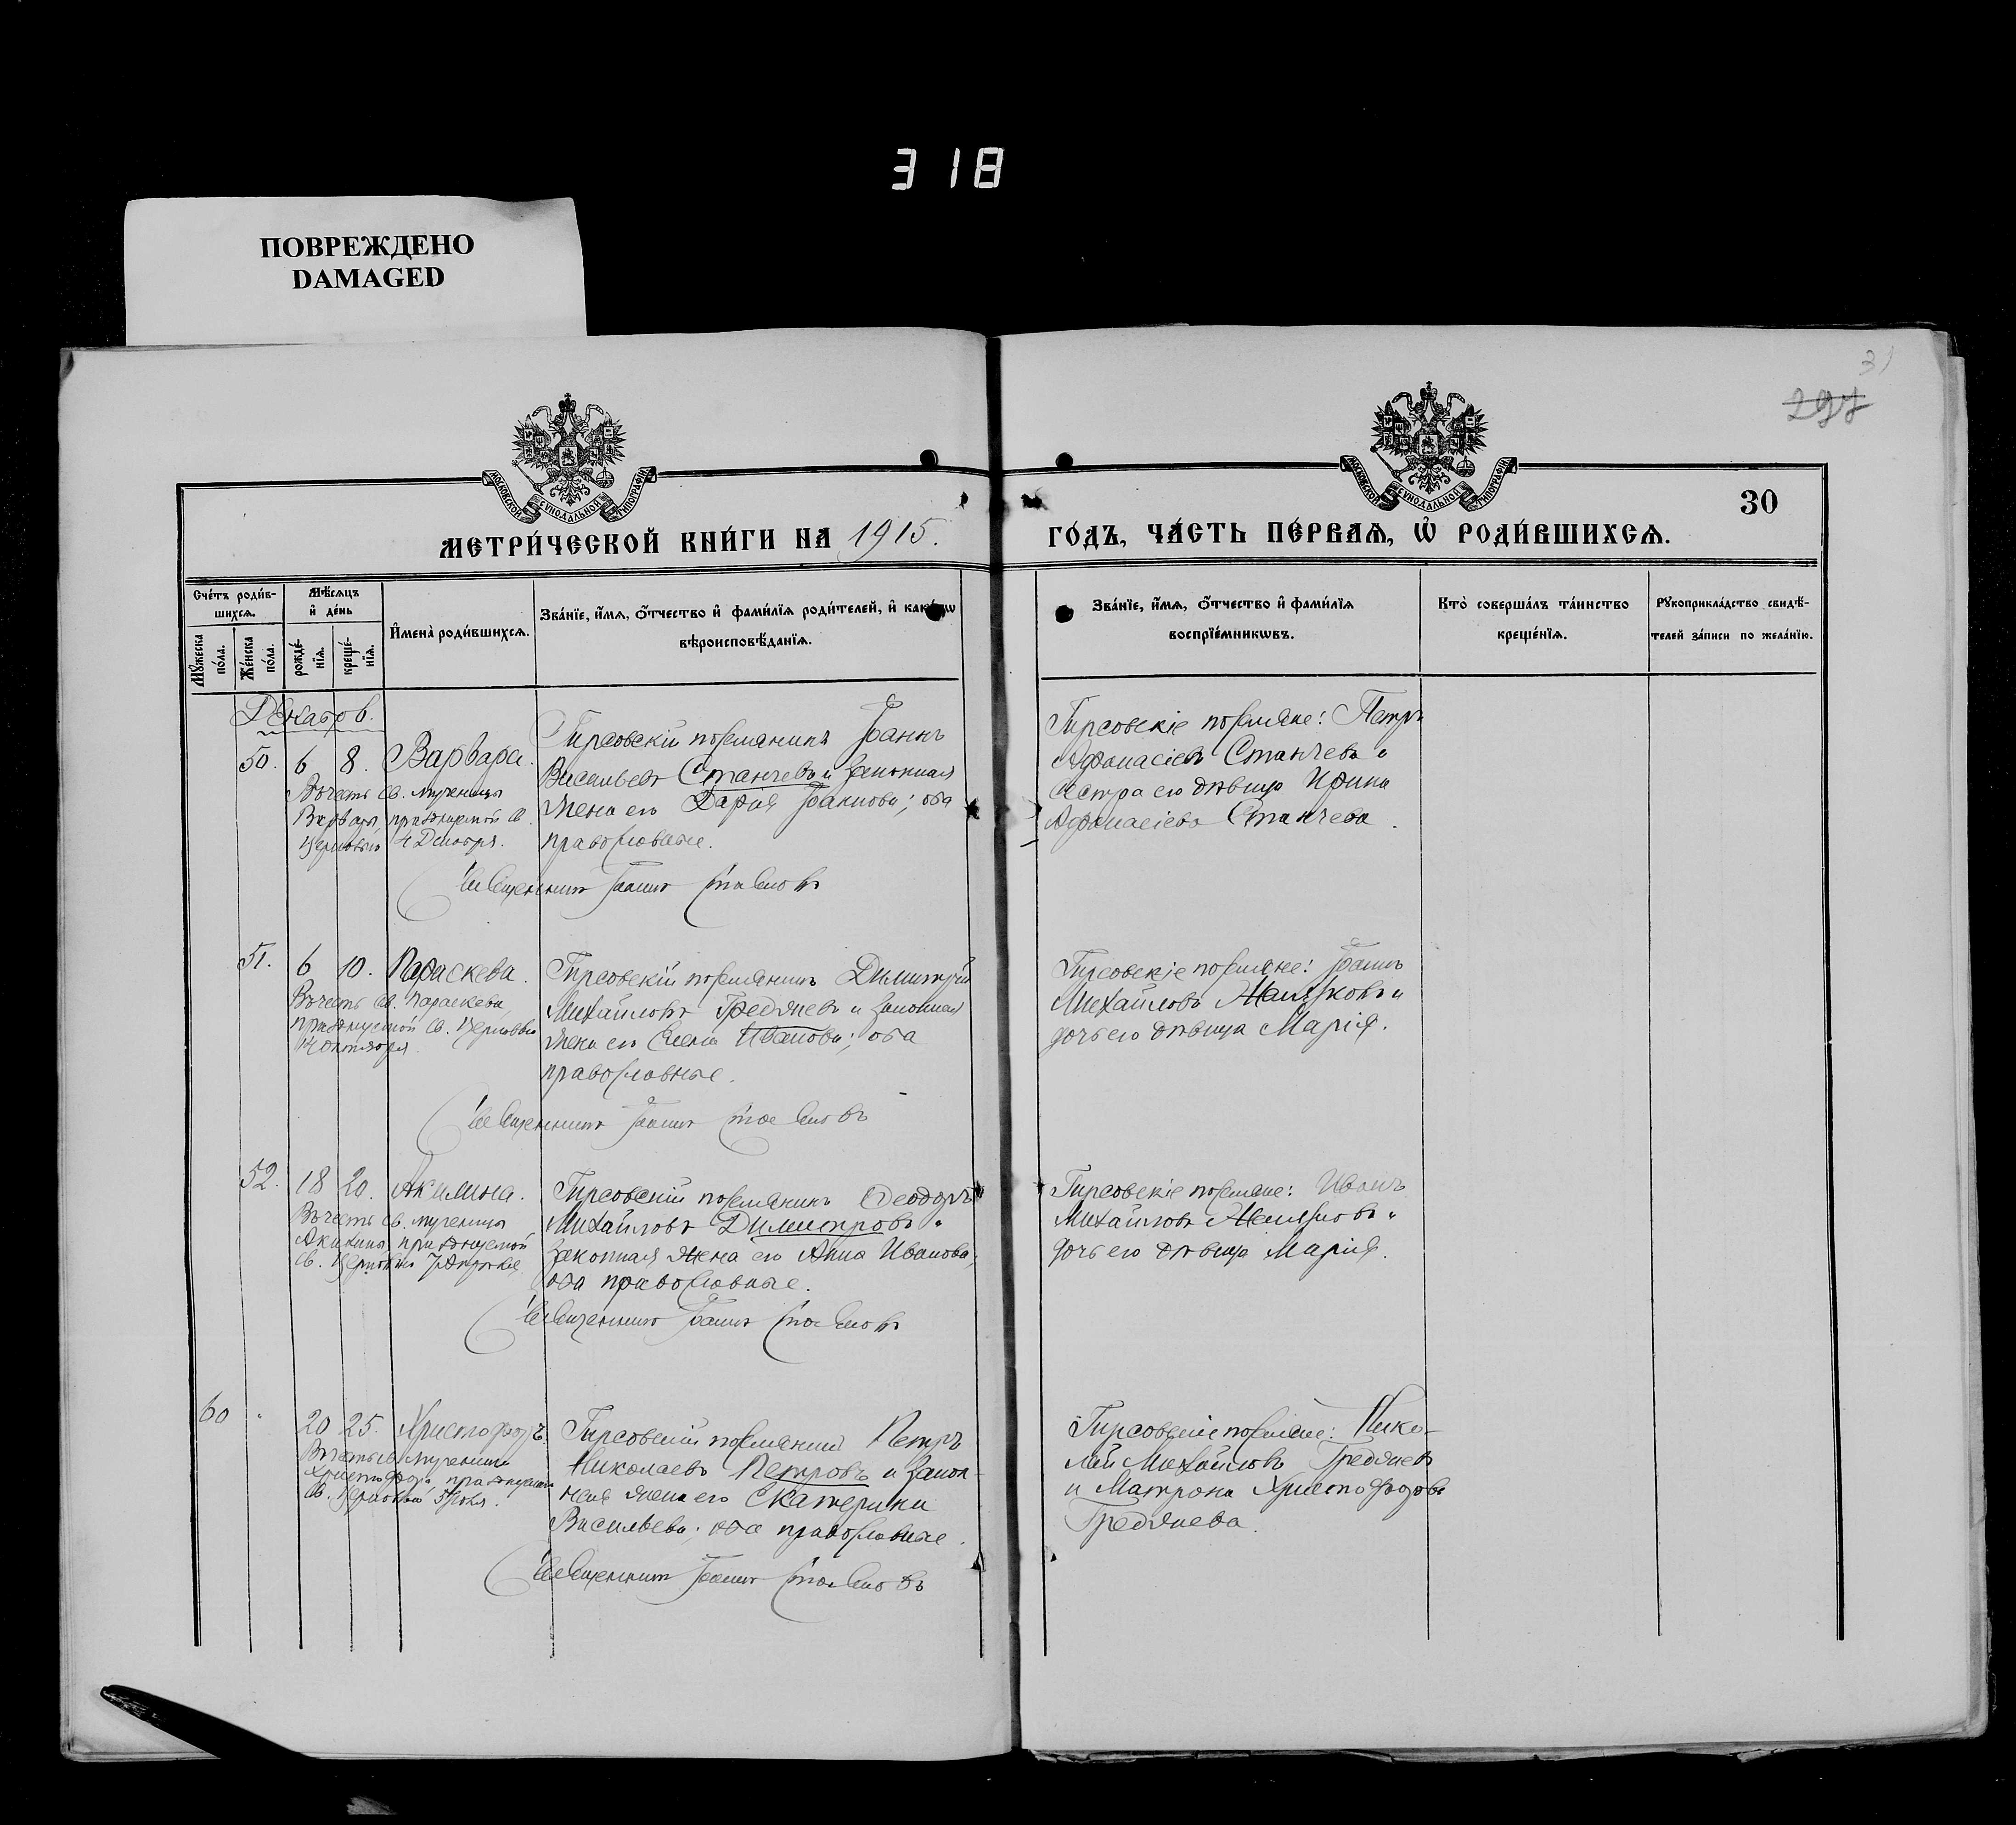 318
ПОВРЕЖДЕНО
DAMAGED
31
297
МОСКОВСКОЙ СѴНОДАЛЬНОЙ ТИПОГРАФІИ
МОСКОВСКОЙ СѴНОДАЛЬНОЙ ТИПОГРАФІИ
30
МЕТРИ́ЧЕСКОЙ КНИ́ГИ НА 1915.
ГО́ДЪ, ЧА́СТЬ ПЕ́РВАѦ, Ѡ҆ РОДИ́ВШИХСѦ.
Сче́тъ роди́в-
шихсѧ.
Мꙋ́жеска по́ла.
Же́нска по́ла.
Мѣ́сѧцъ
и҆ де́нь
рожде́-
нїѧ.
креще́-
нїѧ.
И҆мена̀ роди́вшихсѧ.
Зва́нїе, и҆́мѧ, ѻ҆́тчество и҆ фами́лїѧ роди́телей, и҆ како́гѡ
вѣроисповѣ́данїѧ.
Зва́нїе, и҆́мѧ, ѻ҆́тчество и҆ фами́лїѧ
воспрїе́мникѡвъ.
Кто̀ соверша́лъ та́инство
креще́нїѧ.
Рꙋкоприкла́дство свидѣ́-
телей за́писи по жела́нїю.
Декабрь.
50. 6 8. Варвара.
Въ честь св. мученицы
Варвары, празднуемой св.
Церковью 4 Декабря.
Гирсовскій поселянинъ Іоаннъ
Васильевъ Станчевъ и законная
жена его Дарія Іоаннова; оба
православные.
Священникъ Іоаннъ
Гирсовскіе поселяне: Петръ
Афанасіевъ Станчевъ и
сестра его дѣвица Ирина
Афанасіева Станчева.
51. 6 10. Параскева.
Въ честь св. Параскевы,
празднуемой св. Церковью
14 Октября.
Гирсовскій поселянинъ Димитрій
Михайловъ Греднєвъ и законная
жена его Елена Иванова; оба
православные.
Священникъ Іоаннъ
Гирсовскіе поселяне: Іоаннъ
Михайловъ
дочь его дѣвица Марія.
52. 18 20. Акилина.
Въ честь св. мученицы
Акилины, празднуемой
св. Церковью 7 Апрѣля
Гирсовскій поселянинъ Ѳеодоръ
Михайловъ Димитровъ и
законная жена его Анна Иванова;
оба православные.
Священникъ Іоаннъ
Гирсовскіе поселяне: Иванъ
Михайловъ
дочь его дѣвица Марія.
60 " 20 25. Христофоръ.
Въ честь св. мученика
Христофора, празднуемаго
св. Церковью 9 Мая.
Гирсовскій поселянинъ Петръ
Николаевъ Петровъ и закон-
ная жена его Екатерина
Васильева; оба православные.
Священникъ Іоаннъ
Гирсовскіе поселяне: Нико-
лай Михайловъ
и Матрона Христофорова